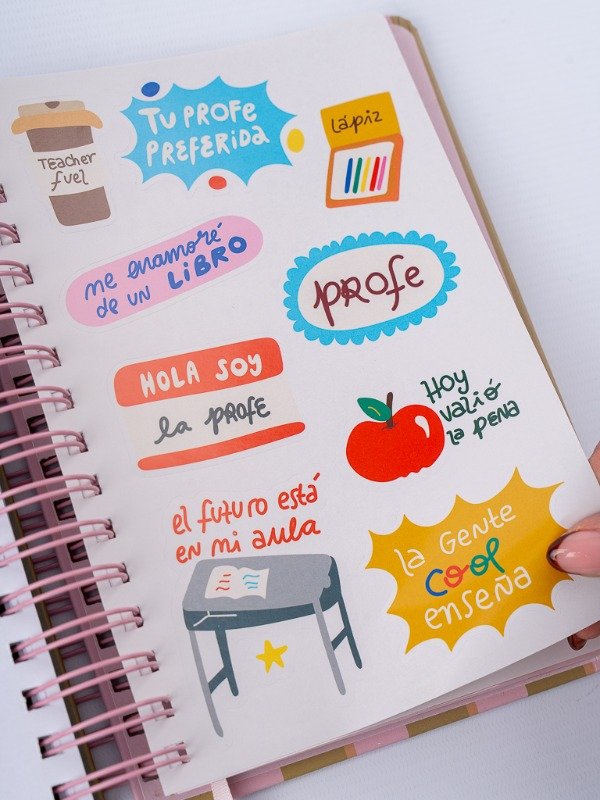 Teacher
fuel
Tu PROFE
PREFERIDA
lápiz
me enamoré
de un LiBRO
pRofe
HOLA SOY
la PROFE
Hoy
valió
la pena
el futuro está
en mi aula
la Gente
cool
enseña